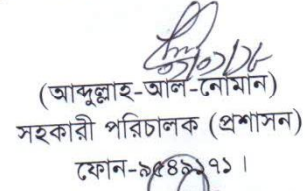 (আব্দুল্লাহ-আল-নোমান)
সহকারী পরিচালক (প্রশাসন)
ফোন-৯৫৪৯১৭১।